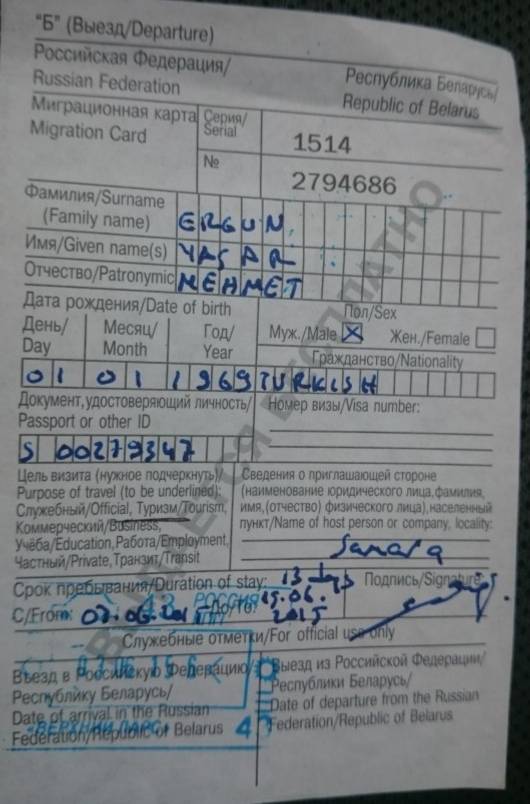 "Б" (Выезд/Departure)
Российская Федерация/
Russian Federation
Республика Беларусь/
Republic of Belarus
Миграционная карта
Migration Card
Серия/
Serial
1514
№
2794686
Фамилия/Surname
(Family name)
ERGUN
Имя/Given name(s)
YASAR
Отчество/Patronymic
MEHMET
Дата рождения/Date of birth
День/
Day
Месяц/
Month
Год/
Year
Пол/Sex
Муж./Male
Жен./Female
Гражданство/Nationality
01 01 1969 TURKISH
Документ, удостоверяющий личность/
Passport or other ID
Номер визы/Visa number:
S 00279347
Цель визита (нужное подчеркнуть)
Purpose of travel (to be underlined):
Служебный/Official, Туризм/Tourism,
Коммерческий/Business,
Учёба/Education, Работа/Employment,
Частный/Private, Транзит/Transit
Сведения о приглашающей стороне
(наименование юридического лица, фамилия,
имя, (отчество) физического лица), населенный
пункт/Name of host person or company, locality:
Samara
Срок пребывания/Duration of stay:
13
Подпись/Signature:
С/From:
До/To:
15.06.
2015
Служебные отметки/For official use only
Въезд в Российскую Федерацию/
Республику Беларусь/
Date of arrival in the Russian
Federation/Republic of Belarus
Выезд из Российской Федерации/
Республики Беларусь/
Date of departure from the Russian
Federation/Republic of Belarus
РОССИЯ
ВЕРХНИЙ ЛАРС
БЕСПЛАТНО